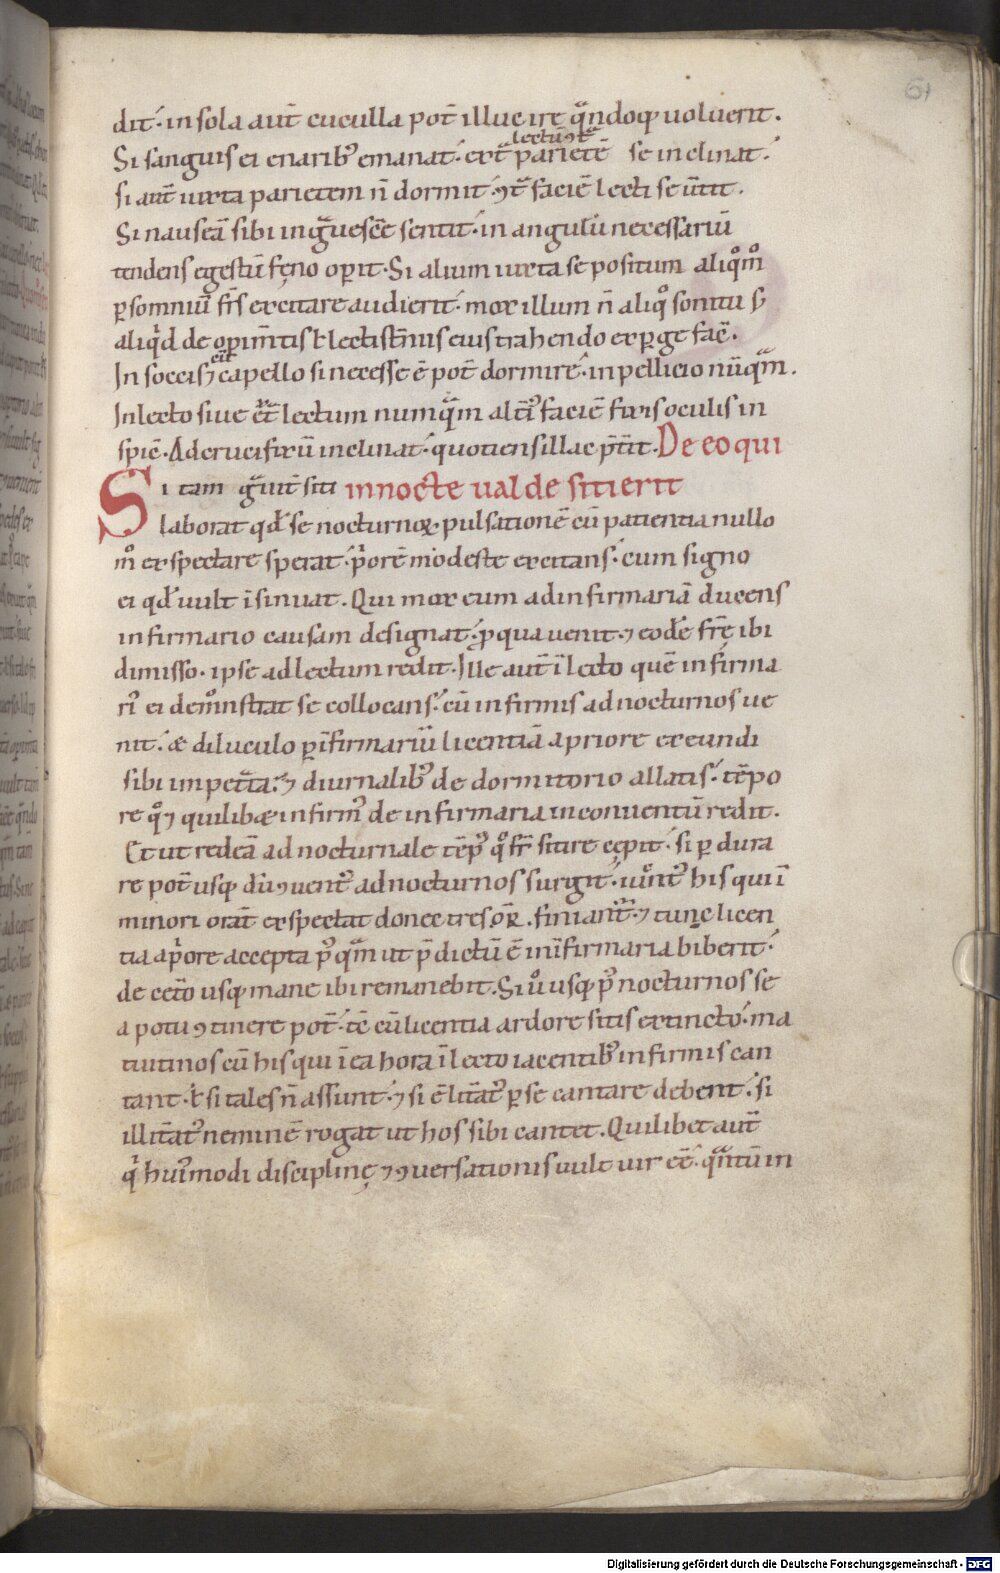 61
dit. in sola aut̄ cuculla pot̄ illuc ire q̄ndoq; uoluerit.
lectū ɔt̄
Si sanguis ei e narib; emanat. ext̄ pariete se inclinat.
si aut̄ iuxta parietem n̄ dormit. ɔt̄ faciē lecti se ūtit.
Si nauseā sibi ingͣuescē sentit. in angulū necessariū
tendens egestū fęno operit. Si alium iuxta se positum aliqͦmͦ
ꝑ somniū fr̄s excitare audierit. mox illum n̄ aliqͦ sonitu ſꝫ
aliqͥd de opim̄tis ł lectist̄niis eius trahendo exꝑgefac̄.
In soccis ⁊ capello si necesse ē pot̄ dormire. in pellicio nūqͣm.
In lecto siue ext̄ lectum numqͣm alti᷒ faciē fixis oculis in
spic̄. Ad crucifixū inclinat. quotiens illac p̄t̄it. De eo qui
Si tam gͣuit̄ siti in nocte ualde sitierit
laborat qđ se nocturnoꝝ pulsationē cū patientia nullo
mͦ exspectare sperat. pͥorē modeste excitans. cum signo
ei qđ uult īsinuat. Qui mox eum ad infirmariā ducens
infirmario causam designat. ꝓ qua uenit. ⁊ eodē fr̄e ibi
dimisso. ipse ad lectum redit. Ille aut̄ ī lecto quē infirma
ri᷒ ei demͦnstrat se collocans. cū infirmis ad nocturnos ue
nit. & diluculo ꝑ īfirmariū licentiā a priore exeundi
sibi impet̄ta. ⁊ diurnalib; de dormitorio allatis. tēpo
re qͦ ⁊ quilib& infirm᷒ de infirmaria in conuentū redit.
Et ut redeā ad nocturnale tēp᷒ qͦ fr̄ sitire cępit. si ꝑdura
re pot̄ usq; dū ɔuent᷒ ad nocturnos surgit. iuͦnt᷒ his qui ī
minori orat̄ exspectat donec tres or̄. finiant̄. ⁊ tunc licen
tia a pͥore accepta p᷒qͣm ut p̄dictū ē in īfirmaria biberit.
de cęto usq; mane ibi remanebit. Si uͦ usq; p᷒ nocturnos se
a potu ɔtinere pot̄. tē cū licentia ardore sitis extincto. ma
tutinos cū his qui ī ea hora ī lecto iacentib; infirmis can
tant. ł si tales n̄ assunt. ⁊ si ē lit̄at᷒ ꝑ se cantare debent. si
illit̄at᷒ neminē rogat ut hos sibi cantet. Quilibet aut̄
qͥ hui᷒modi disciplinę ⁊ ɔuersationis uult uir eē. qͣntū in
Digitalisierung gefördert durch die Deutsche Forschungsgemeinschaft - DFG